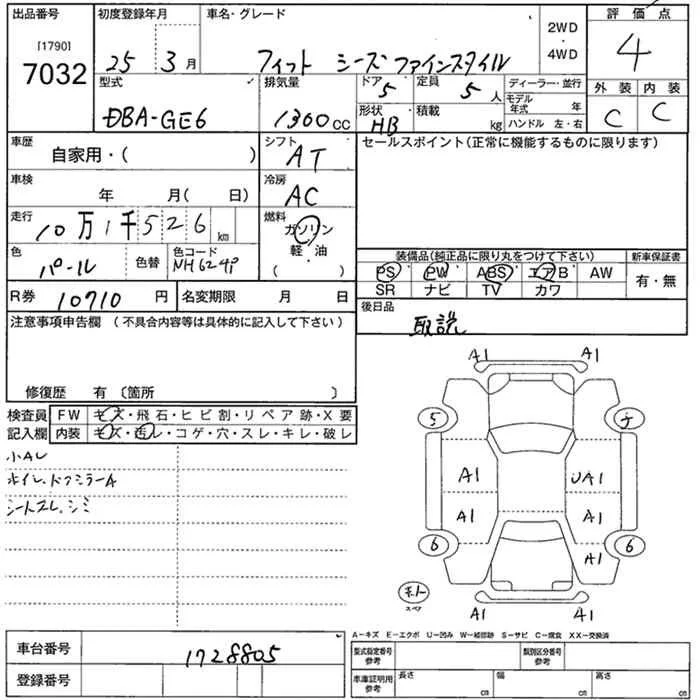 出品番号 初度登録年月 車名・グレード 2WD・4WD 評価点
[1790]
7032
25 3月 フィット シーズファインスタイル 4
型式 排気量 ドア 定員 ディーラー・並行 外装 内装
DBA-GE6 1300cc 5 5人 モデル年式 年 C C
形状 積載 ハンドル 左・右
HB kg
車歴 シフト セールスポイント(正常に機能するものに限ります)
自家用・( ) AT
車検 冷房
年 月( 日) AC
走行 燃料
10万1千526km ガソリン
軽・油
( )
色 色替 色コード 装備品(純正品に限り丸をつけて下さい) 新車保証書
パール NH624P PS PW ABS エアB AW 有・無
SR ナビ TV カワ
R券 10710円 名変期限 月 日 後日品
取説
注意事項申告欄(不具合内容等は具体的に記入して下さい)
修復歴 有〔箇所 〕
検査員 FW キズ・飛石・ヒビ割・リペア跡・X要
記入欄 内装 キズ・汚レ・コゲ・穴・スレ・キレ・破レ
小AU
ホイル、ドアミラーA
シートスレ、シミ
A1 A1
5
A1 UA1
A1 A1
6 A1 6
A1
A-キズ E-エクボ U-凹み W-補修跡 S-サビ C-腐食 XX-交換済
車台番号 1728805
登録番号
型式指定番号参考 類別区分番号参考
車庫証明用参考 長さ cm 幅 cm 高さ cm